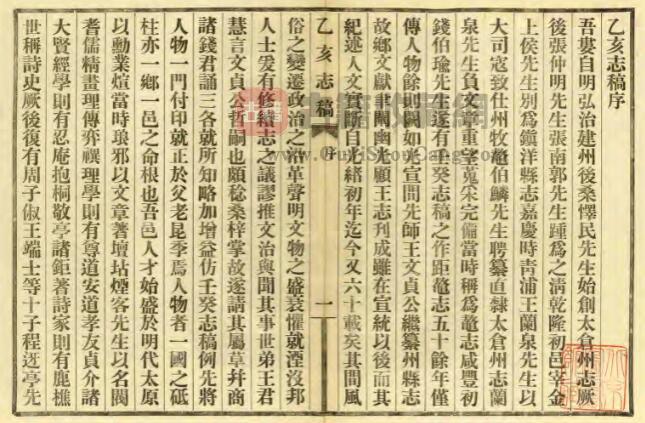 乙亥志稿序
吾婁自明弘治建州後桑懌民先生始創太倉州志厥
後張仲明先生張南郭先生踵為之淸乾隆初邑宰金
上侯先生別為鎭洋縣志嘉慶時靑浦王蘭泉先生以
大司寇致仕州牧鼇伯麟先生聘纂直隸太倉州志蘭
泉先生負文章重望蒐采完備當時稱為鼇志咸豐初
錢伯瑜先生遂有壬癸志稿之作距鼇志五十餘年僅
傳人物餘則闕如光宣間先師王文貞公繼纂州縣志
故鄕文獻聿闡幽光顧王志刊成雖在宣統以後而其
紀述人文實斷自光緒初年迄今又六十載矣其間風
乙亥志稿
序
一
俗之變遷政治之沿革聲明文物之盛衰懼就湮沒邦
人士爰有修續志之議謬推文治與聞其事世弟王君
慧言文貞公哲嗣也頗稔桑梓掌故遂請其屬草幷商
諸錢君誦三各就所知略加增益仿壬癸志稿例先將
人物一門付印就正於父老昆季焉人物者一國之砥
柱亦一鄕一邑之命根也吾邑人才始盛於明代太原
以勳業煊當時琅邪以文章著壇坫煙客先生以名閥
耆儒精畫理傳弈禩理學則有尊道安道孝友貞介諸
大賢經學則有忍庵抱桐敬亭諸鉅著詩家則有鹿樵
世稱詩史厥後復有周子俶王端士等十子程迓亭先